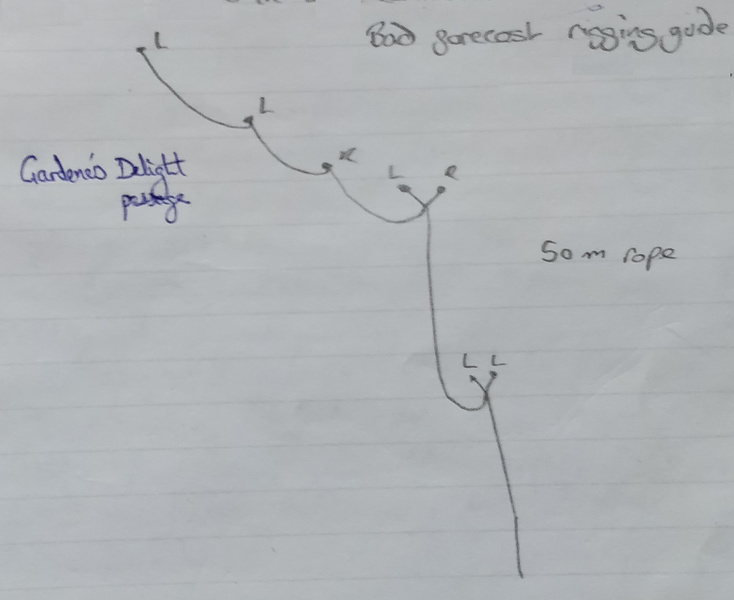 Bad forecast rigging guide
L
L
Gardener's Delight
passage
R
L R
50 m rope
L L